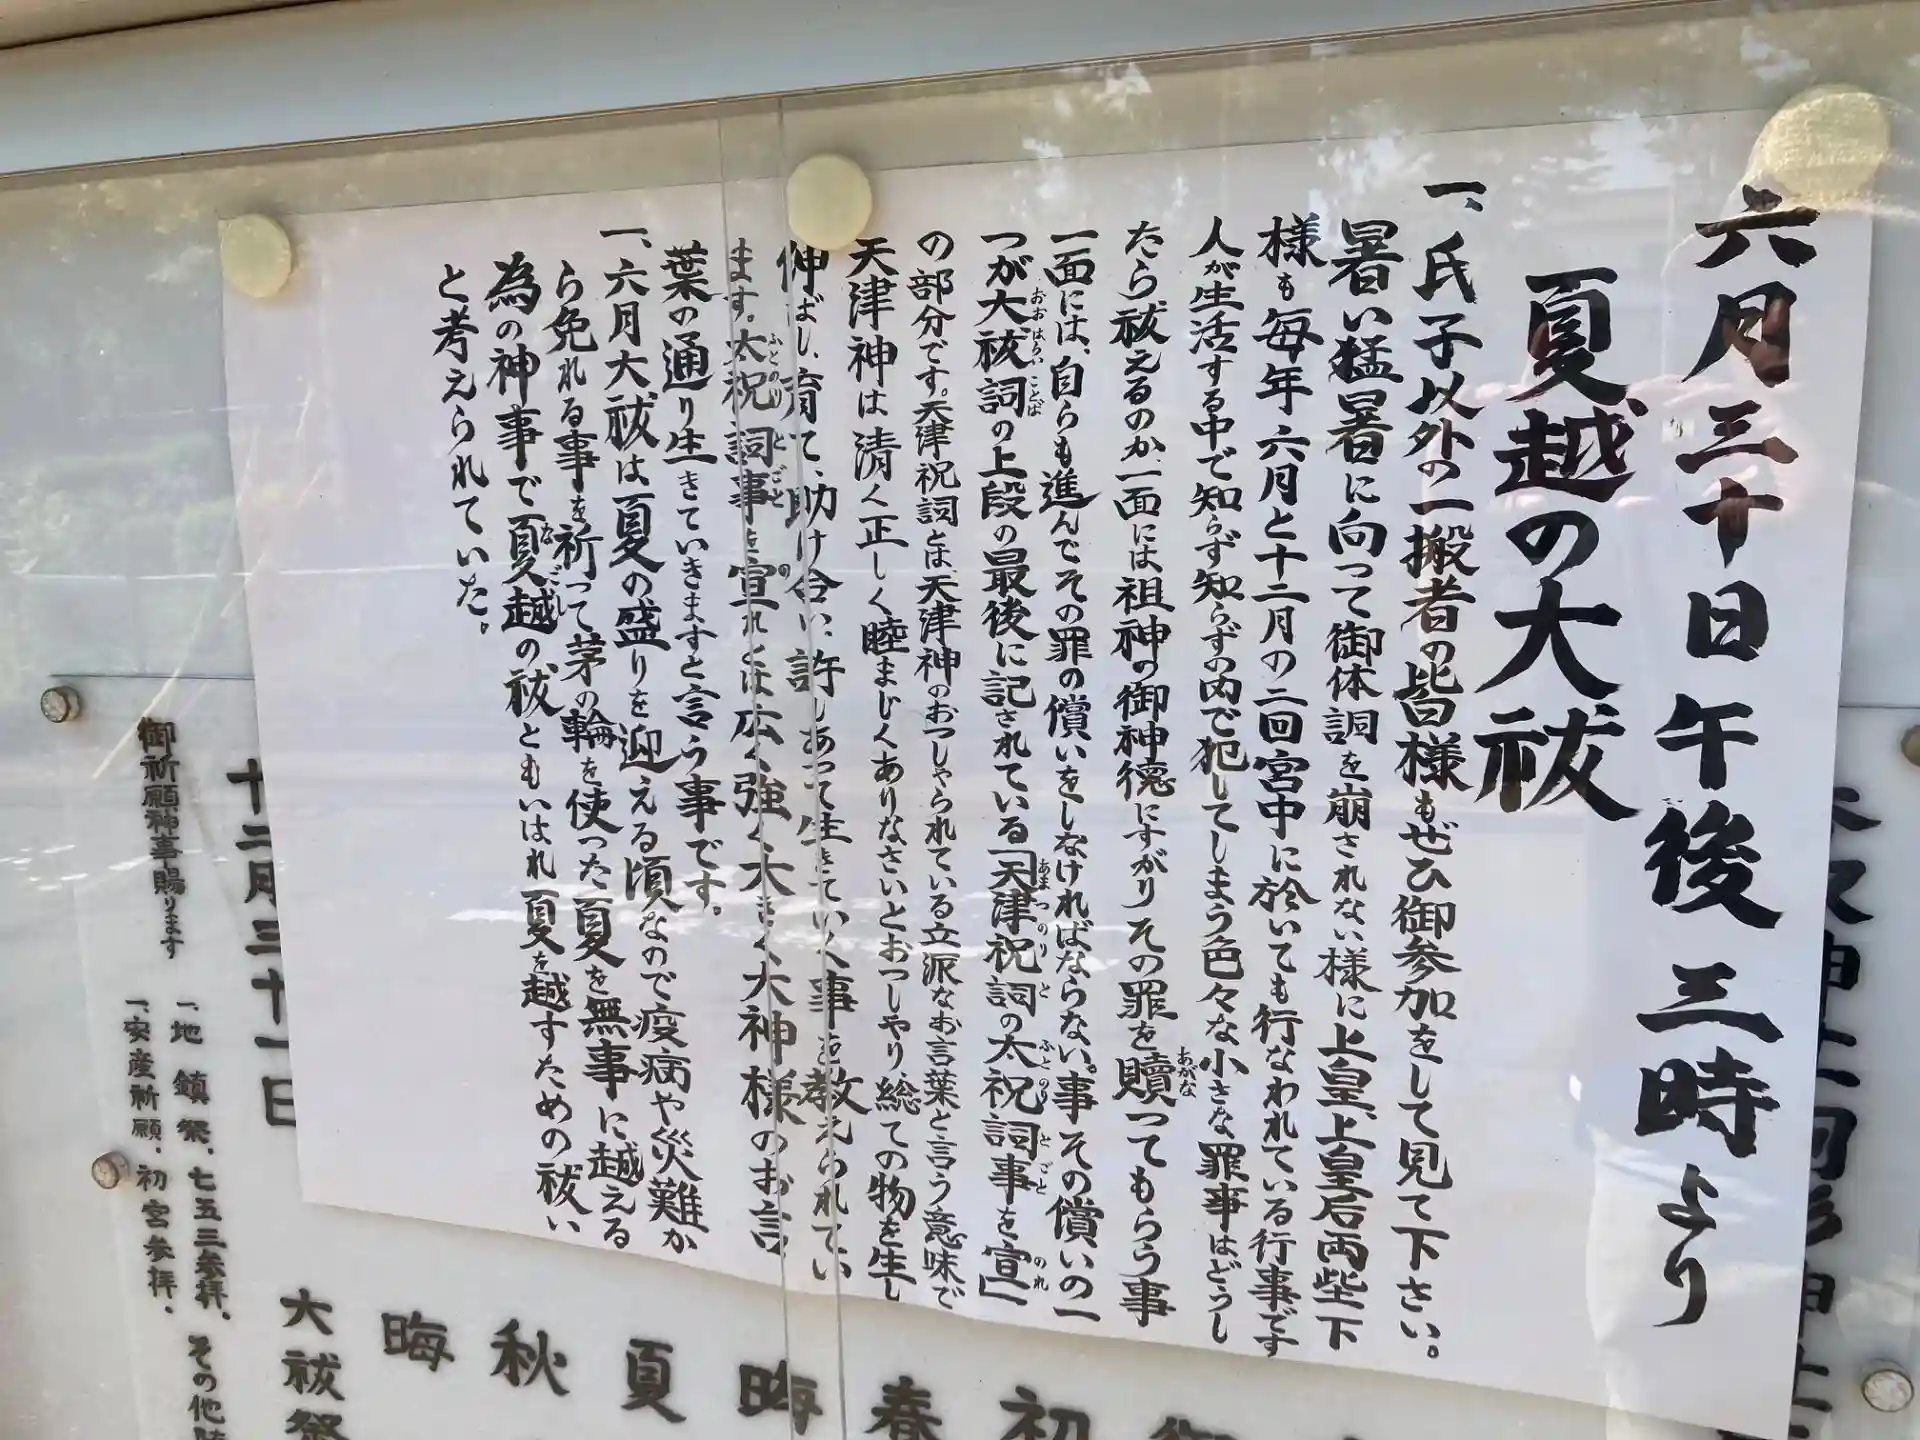 六月三十日午後三時より
夏越の大祓
一、氏子以外の一搬者の皆様もぜひ御参加をして見て下さい。
暑い猛暑に向って御体調を崩されない様に上皇、上皇后両陛下
様も毎年六月と十二月の二回宮中に於いても行なわれている行事です
人が生活する中で知らず知らずの内で犯してしまう色々な小さな罪事はどうし
たら祓えるのか、一面には祖神の御神德にすがりその罪を贖ってもらう事
一面には、自らも進んでその罪の償いをしなければならない。事その償いの一
つが大祓詞の上段の最後に記されている「天津祝詞の太祝詞事を宣」
の部分です。天津祝詞とは、天津神のおっしゃられている立派なお言葉と言う意味で
天津神は清く正しく睦まじくありなさいとおっしゃり、総ての物を生し
伸ばし、育て、助け合い、許しあって生きていく事を教えられてい
ます。太祝詞事を宣れとは広く強く大きく大神様のお言
葉の通り生きていきますと言う事です。
一、六月大祓は夏の盛りを迎える頃なので疫病や災難か
ら免れる事を祈って茅の輪を使った夏を無事に越える
為の神事で夏越の祓ともいはれ夏を越すための祓い
と考えられていた。
十二月三十一日
大祓祭
御祈願神事賜ります
一、地鎮祭、七五三参拝、その他
一、安産祈願、初宮参拝、
晦
秋
夏
晦
春
初